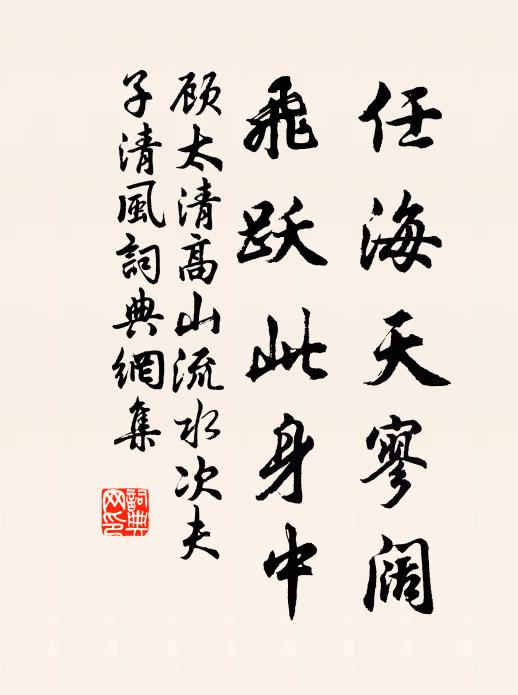 任海天寥阔
飞跃此身中
顾太清高山流水次夫
子清風詞典網集
詞典网印